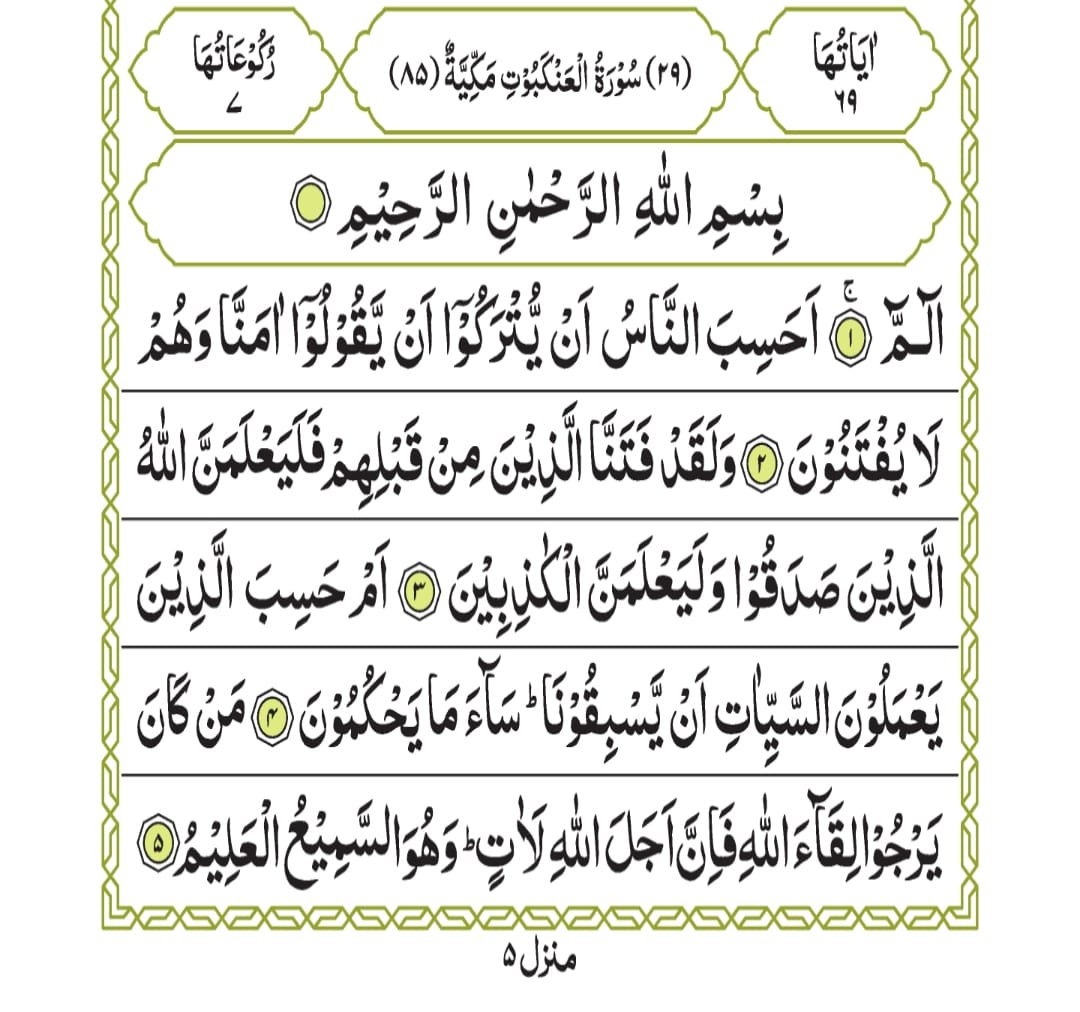 اٰیَاتُهَا ٦٩ (٢٩) سُوْرَةُ الْعَنْكَبُوْتِ مَكِّیَّةٌ (٨٥) رُكُوْعَاتُهَا ٧
بِسْمِ اللّٰهِ الرَّحْمٰنِ الرَّحِیْمِ
الٓـمّٓ ۚ ﴿۱﴾ اَحَسِبَ النَّاسُ اَنْ یُّتْرَكُوْۤا اَنْ یَّقُوْلُوْۤا اٰمَنَّا وَهُمْ
لَا یُفْتَنُوْنَ ﴿۲﴾ وَلَقَدْ فَتَنَّا الَّذِیْنَ مِنْ قَبْلِهِمْ فَلَیَعْلَمَنَّ اللّٰهُ
الَّذِیْنَ صَدَقُوْا وَلَیَعْلَمَنَّ الْكٰذِبِیْنَ ﴿۳﴾ اَمْ حَسِبَ الَّذِیْنَ
یَعْمَلُوْنَ السَّیِّاٰتِ اَنْ یَّسْبِقُوْنَا ؕ سَآءَ مَا یَحْكُمُوْنَ ﴿۴﴾ مَنْ كَانَ
یَرْجُوْا لِقَآءَ اللّٰهِ فَاِنَّ اَجَلَ اللّٰهِ لَاٰتٍ ؕ وَهُوَ السَّمِیْعُ الْعَلِیْمُ ﴿۵﴾
منزل ۵